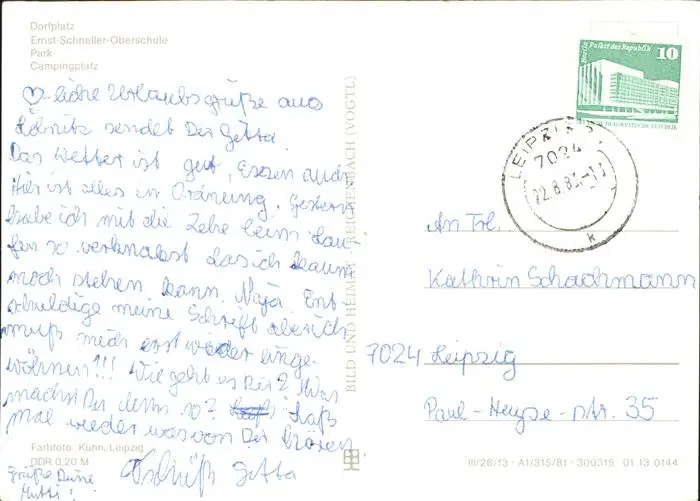 Dorfplatz
Ernst-Schneller-Oberschule
Park
Campingplatz
♡-liche Urlaubsgrüße aus
Löbnitz sendet Dir Getta.
Das Wetter ist gut, Essen auch
Hier ist alles in Ordnung. Gestern
habe ich mit die Zehe beim Lau-
fen so verknakst das ich kaum
noch stehen kann. Naja. Ent
schuldige meine Schrift aber ich
muß mich erst wieder einge-
wöhnen!!! Wie geht es Dir? Was
machst Du denn so? Laß
mal wieder was von Dir hören
Tschüß Getta
grüße Deine
Mutti!
Farbfoto. Kühn, Leipzig
DDR 0,20 M
BILD UND HEIMAT REICHENBACH (VOGTL)
Berlin Palast der Republik 10
DEUTSCHE DEMOKRATISCHE REPUBLIK
LEIPZIG
7024
22.8.83
k
An Frl.
Kathrin Schachmann
7024 Leipzig
Paul-Heyse-Str. 35
III/26/13 · A1/315/81 · 300315 01 13 0144